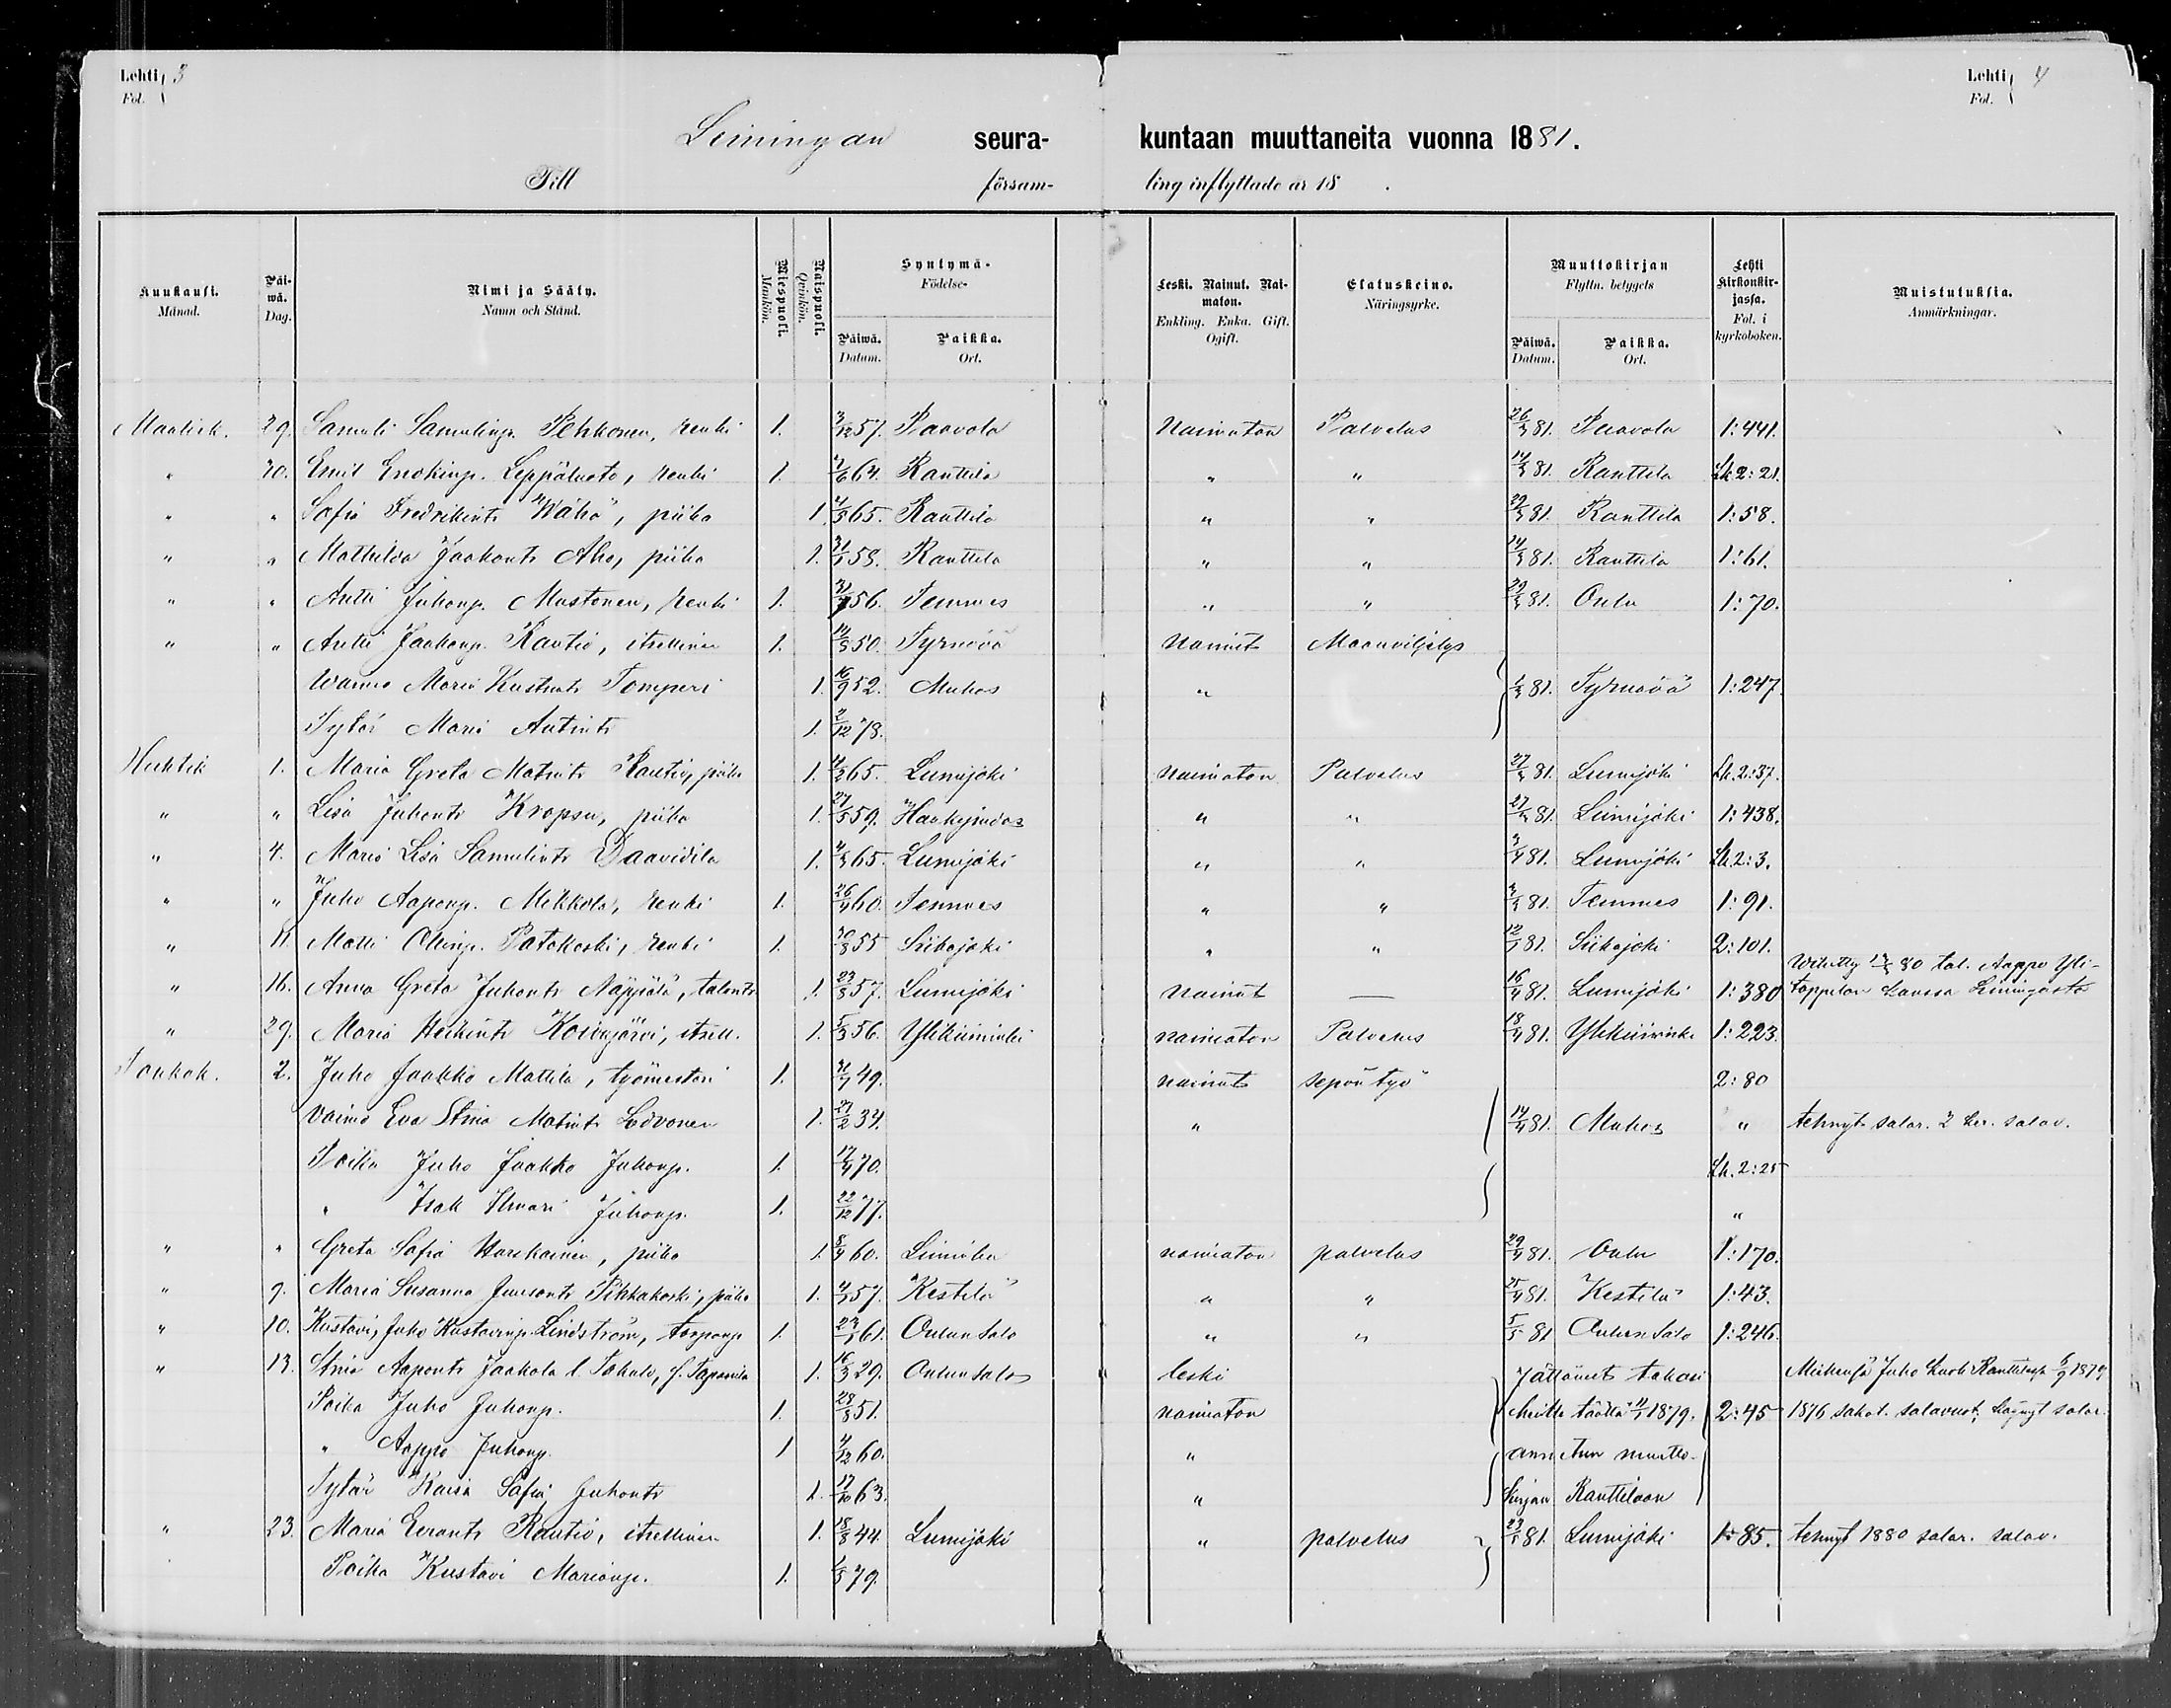 Lehti 3
Fol.
Lehti 4
Fol.
Liminyan seura- kuntaan muuttaneita vuonna 1881.
Till försam- ling inflyttade år 18 .
Kuukausi. Månad.
Päi-wä. Dag.
Nimi ja Sääty. Namn och Stånd.
Miespuoli. Mankön.
Naispuoli. Qvinkön.
Syntymä- Födelse-
Päiwä. Datum.
Paikka. Ort.
Leski. Nainut. Nai-maton. Enkling. Enka. Gift. Ogift.
Elatuskeino. Näringsyrke.
Muuttokirjan Flyttn. betygets
Päiwä. Datum.
Paikka. Ort.
Lehti Kirkonkir-jassa. Fol. i kyrkoboken.
Muistutuksia. Anmärkningar.
Maalisk. 29. Samuli Samulinp. Pehkonen, renki 1. 3/12 57. Paavola Naimaton Palvelus 26/3 81. Paavola 1:441.
" 30. Emil Enokinp. Leppäluoto, renki 1. 64. Ranttila " " 14/3 81. Ranttila Lk 2:21.
" " Sofia Fredrikint. Wähä, piika 1. 65. Ranttila " " 29/3 81. Ranttila 1:58.
" " Mathilda Jaakont. Aho, piika 1. 58. Ranttila " " 14/3 81. Ranttila 1:61.
" " Antti Juhonp. Mustonen, renki 1. 56. Temmes " " 29/3 81. Oulu 1:70.
" " Antti Jaakonp. Rautio, itsellinen 1. 50. Tyrnävä Nainut Maanviljelys
Waimo Maria Kustaant. Tomperi 1. 16/9 52. Muhos " 81. Tyrnävä 1:247.
Tytär Maria Antint. 1. 2/12 78.
Huhtik 1. Maria Greta Matint. Rautio, piika 1. 65. Lumijoki naimaton Palvelus 27/3 81. Lumijoki Lk. 2:37.
" " Lisa Juhont. Kropsu, piika 1. 27/5 59. " " 27/3 81. Lumijoki 1:438.
" 4. Maria Lisa Samulint. Daavidila 1. 65. Lumijoki " " 81. Lumijoki Lk 2:3.
" " Juho Aaponp. Mikkola, renki 1. 26/4 60. Temmes " " 81. Temmes 1:91.
" 11. Matti Ollinp. Patokoski, renki 1. 55 Siikajoki " " 81. Siikajoki 2:101.
" 16. Anna Greta Juhont. Näppälä, talont. 1. 23/8 57. Lumijoki Nainut — 16/4 81. Lumijoki 1:380 80 tal. Aappo Yli-
" 29. Maria Heikint. Koivujärvi, itsell. 1. 5/3 56. Ylikiiminki naimaton Palvelus 18/4 81. Ylikiiminki 1:223.
Toukok. 2. Juho Jaakko Mattila, työmestari 1. 49. nainut sepän työ 2:80
Vaimo Eva Stina Matint. Lovonen 1. 27/2 34. " 14/4 81. Muhos " tehnyt salav. 2 ker. salav.
Poika Juho Jaakko Juhonp. 1. 17/4 70. Lk. 2:25
" Isak Ilmari Juhonp. 1. 22/12 77. "
" " Greta Sofia Harskainen, piika 1. 8/4 60. Liminka naimaton palvelus 29/4 81. Oulu 1:170.
" 9. Maria Susanna Pihkakoski, piika 1. 57. Kestilä " " 25/4 81. Kestilä 1:43.
" 10. Kustavi, Juho Kustavinp. Lindström, torponp. 1. 61. Oulunsalo " " 5/5 81 Oulunsalo 1:246.
" 13. Stina Aapont. Jaakola l. 1. 16/3 29. Oulunsalo leski Jättäneet takasi Juho 1879
Poika Juho Juhonp. 1. 28/8 51. naimaton meiltä täältä 1879. 2:45 1876 salavuot. käynyt salav.
" Aappo Juhonp. 1 4/12 60. " annetun muutto-
Tytär Kaisa Sofia Juhont. 1. 17/10 63. " kirjan Ranttilaan
" 23. Maria Eerant. Rautio, itsellinen 1. 18/8 44. Lumijoki " palvelus 23/5 81. Lumijoki 1:85. tehnyt 1880 salav. salav.
Poika Kustavi Marianp. 1. 79.